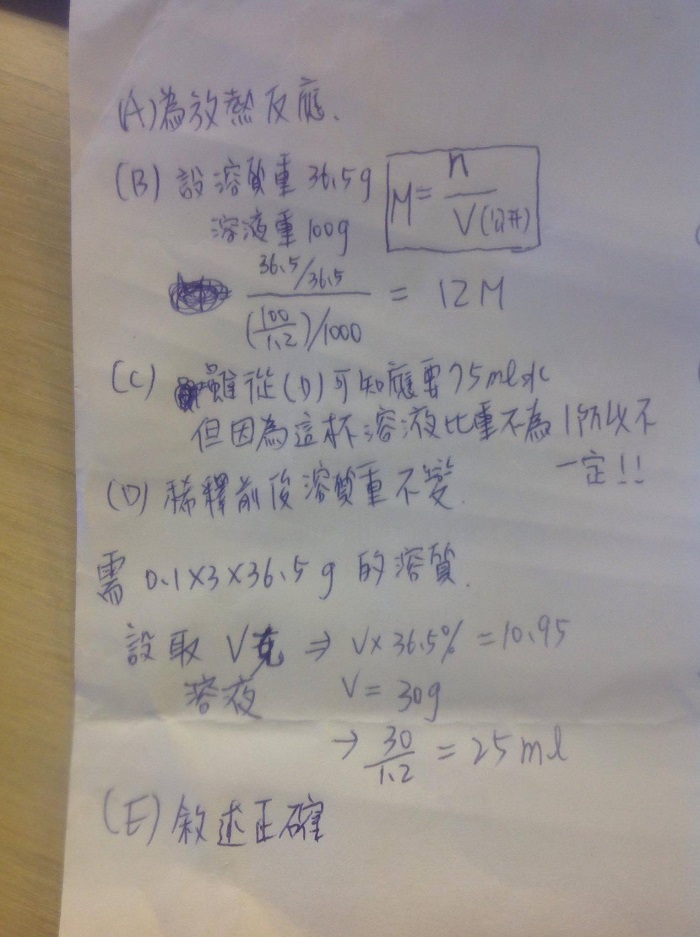 (A)為放熱反應.
(B) 設溶質重 36.5g
溶液重 100g
M = n / V(公升)
(36.5/36.5) / ((100/1.2)/1000) = 12M
(C) 雖從(D)可知應要75ml水
但因為這杯溶液比重不為1所以不
一定!!
(D) 稀釋前後溶質重不變.
需 0.1×3×36.5g 的溶質.
設取 V克 ⇒ V×36.5% = 10.95
溶液 V = 30g
→ 30/1.2 = 25ml
(E) 敘述正確